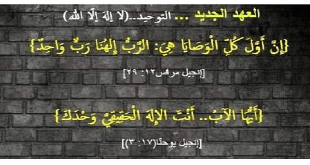 العهد الجديد ... التوحيد..(لا إله إلا الله)
{إِنَّ أَوَّلَ كُلِّ الْوَصَايَا هِيَ: الرَّبُّ إِلهُنَا رَبٌّ وَاحِدٌ}
[إنجيل مرقس١٢: ٢٩]
{أَيُّهَا الآبُ.. أَنْتَ الإِلهَ الْحَقِيقِيَّ وَحْدَكَ}
[إنجيل يوحنا(١٧: ٣)]